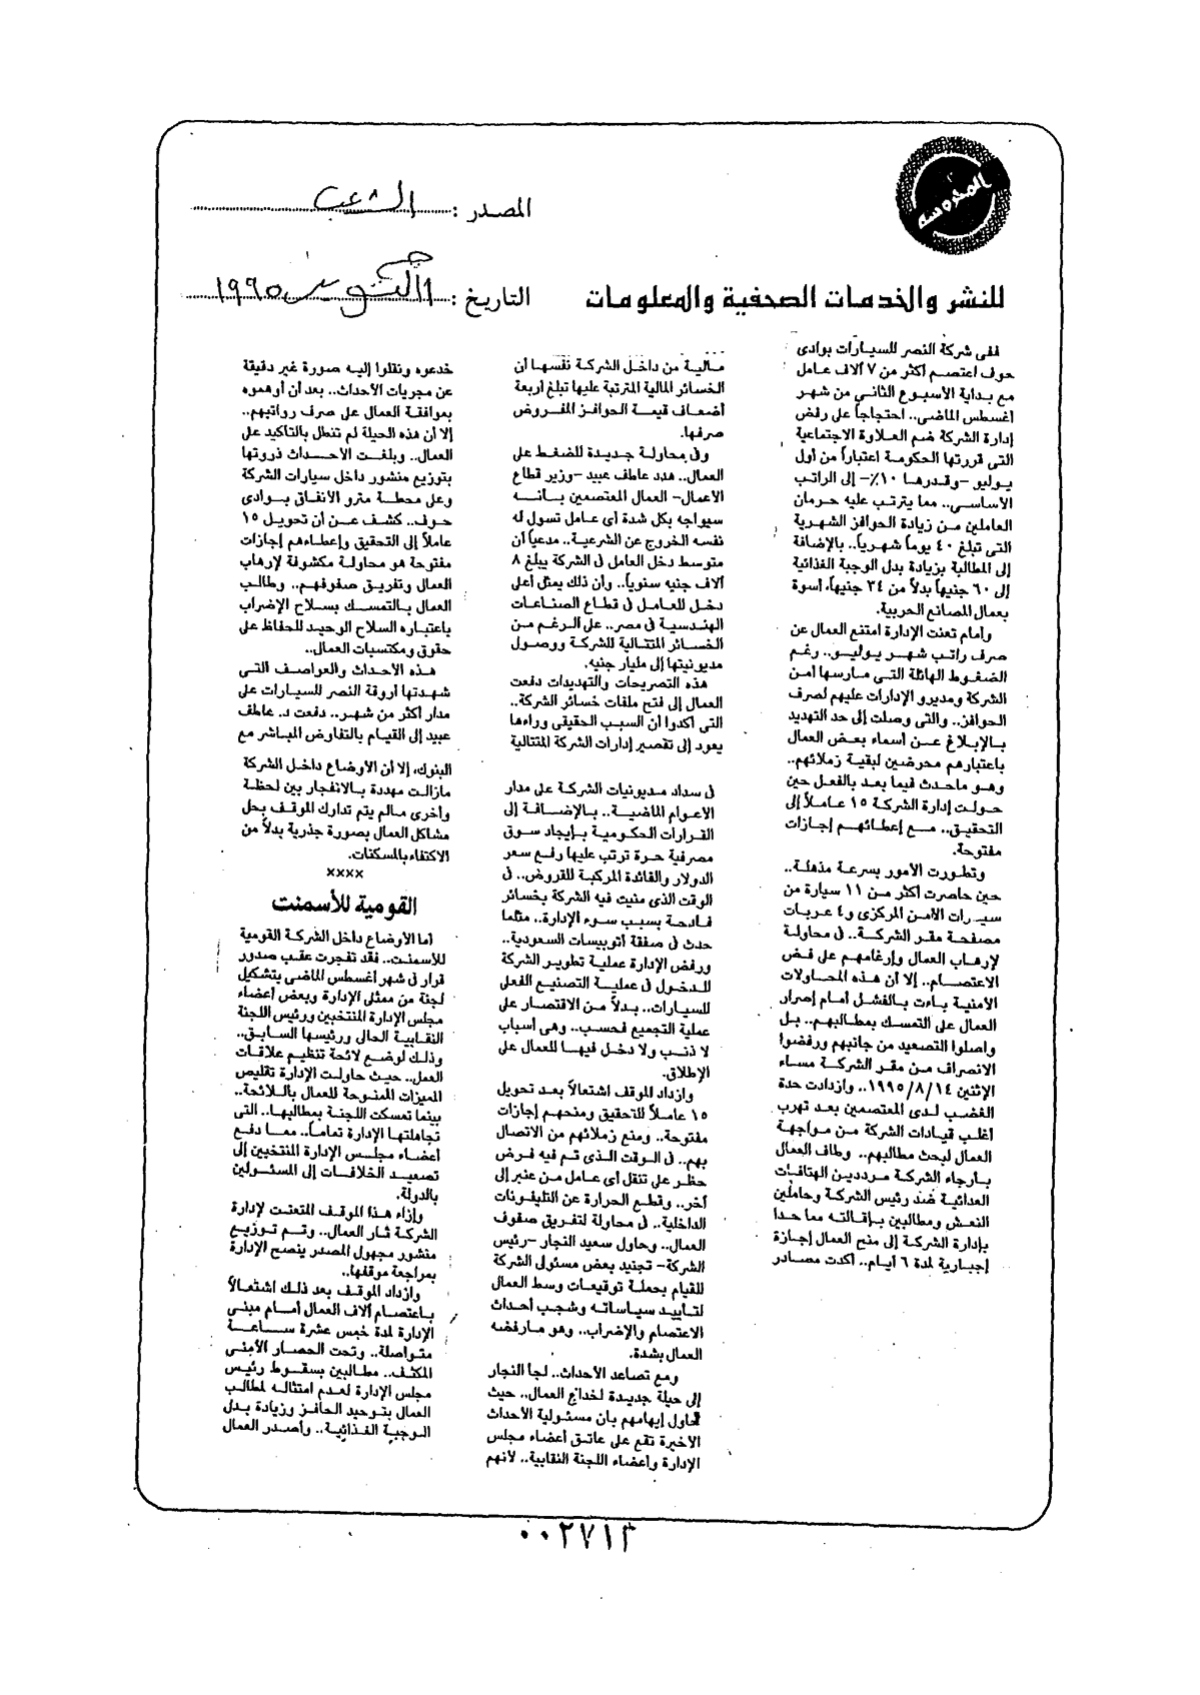 المحروسة
المصدر : الشعب
للنشر والخدمات الصحفية والمعلومات
التاريخ : أكتوبر ١٩٩٥
ففى شركة النصر للسيارات بوادى
حوف اعتصم أكثر من ٧ آلاف عامل
مع بداية الأسبوع الثانى من شهر
أغسطس الماضى.. احتجاجاً على رفض
إدارة الشركة ضم العلاوة الاجتماعية
التى قررتها الحكومة اعتباراً من أول
يوليو -وقدرها ١٠٪- إلى الراتب
الأساسى.. مما يترتب عليه حرمان
العاملين من زيادة الحوافز الشهرية
التى تبلغ ٤٠ يوماً شهرياً.. بالإضافة
إلى المطالبة بزيادة بدل الوجبة الغذائية
إلى ٦٠ جنيهاً بدلاً من ٢٤ جنيهاً، أسوة
بعمال المصانع الحربية.
وأمام تعنت الإدارة امتنع العمال عن
صرف راتب شهر يوليو.. رغم
الضغوط الهائلة التى مارسها أمن
الشركة ومديرو الإدارات عليهم لصرف
الحوافز.. والتى وصلت إلى حد التهديد
بالإبلاغ عن أسماء بعض العمال
باعتبارهم محرضين لبقية زملائهم..
وهو ماحدث فيما بعد بالفعل حين
حولت إدارة الشركة ١٥ عاملاً إلى
التحقيق.. مع إعطائهم إجازات
مفتوحة.
وتطورت الأمور بسرعة مذهلة..
حين حاصرت أكثر من ١١ سيارة من
سيارات الأمن المركزى و٤ عربات
مصفحة مقر الشركة.. فى محاولة
لإرهاب العمال وإرغامهم على فض
الاعتصام.. إلا أن هذه المحاولات
الأمنية باءت بالفشل أمام إصرار
العمال على التمسك بمطالبهم.. بل
واصلوا التصعيد من جانبهم ورفضوا
الانصراف من مقر الشركة مساء
الإثنين ١٩٩٥/٨/١٤.. وازدادت حدة
الغضب لدى المعتصمين بعد تهرب
أغلب قيادات الشركة من مواجهة
العمال لبحث مطالبهم.. وطاف العمال
بأرجاء الشركة مرددين الهتافات
العدائية ضد رئيس الشركة وحاملين
النعش ومطالبين بإقالته مما حدا
بإدارة الشركة إلى منح العمال إجازة
إجبارية لمدة ٦ أيام.. أكدت مصادر
مالية من داخل الشركة نفسها أن
الخسائر المالية المترتبة عليها تبلغ أربعة
أضعاف قيمة الحوافز المفروض
صرفها.
وفى محاولة جديدة للضغط على
العمال.. هدد عاطف عبيد -وزير قطاع
الأعمال- العمال المعتصمين بأنه
سيواجه بكل شدة أى عامل تسول له
نفسه الخروج عن الشرعية.. مدعياً أن
متوسط دخل العامل فى الشركة يبلغ ٨
آلاف جنيه سنوياً.. وأن ذلك يمثل أعلى
دخل للعامل فى قطاع الصناعات
الهندسية فى مصر.. على الرغم من
الخسائر المتتالية للشركة ووصول
مديونيتها إلى مليار جنيه.
هذه التصريحات والتهديدات دفعت
العمال إلى فتح ملفات خسائر الشركة..
التى أكدوا أن السبب الحقيقى وراءها
يعود إلى تقصير إدارات الشركة المتتالية
فى سداد مديونيات الشركة على مدار
الأعوام الماضية.. بالإضافة إلى
القرارات الحكومية بإيجاد سوق
مصرفية حرة ترتب عليها رفع سعر
الدولار والفائدة المركبة للقروض.. فى
الوقت الذى منيت فيه الشركة بخسائر
فادحة بسبب سوء الإدارة.. مثلما
حدث فى صفقة أتوبيسات السعودية..
ورفض الإدارة عملية تطوير الشركة
للدخول فى عملية التصنيع الفعلى
للسيارات.. بدلاً من الاقتصار على
عملية التجميع فحسب.. وهى أسباب
لا ذنب ولا دخل فيها للعمال على
الإطلاق.
وازداد الموقف اشتعالاً بعد تحويل
١٥ عاملاً للتحقيق ومنحهم إجازات
مفتوحة.. ومنع زملائهم من الاتصال
بهم.. فى الوقت الذى تم فيه فرض
حظر على تنقل أى عامل من عنبر إلى
آخر.. وقطع الحرارة عن التليفونات
الداخلية.. فى محاولة لتفريق صفوف
العمال.. وحاول سعيد النجار -رئيس
الشركة- تجنيد بعض مسئولى الشركة
للقيام بحملة توقيعات وسط العمال
لتأييد سياساته وشجب أحداث
الاعتصام والإضراب.. وهو مارفضه
العمال بشدة.
ومع تصاعد الأحداث.. لجأ النجار
إلى حيلة جديدة لخداع العمال.. حيث
حاول إيهامهم بأن مسئولية الأحداث
الأخيرة تقع على عاتق أعضاء مجلس
الإدارة وأعضاء اللجنة النقابية.. لأنهم
خدعوه ونقلوا إليه صورة غير دقيقة
عن مجريات الأحداث.. بعد أن أوهموه
بموافقة العمال على صرف رواتبهم..
إلا أن هذه الحيلة لم تنطل بالتأكيد على
العمال.. وبلغت الأحداث ذروتها
بتوزيع منشور داخل سيارات الشركة
وعلى محطة مترو الأنفاق بوادى
حوف.. كشف عن أن تحويل ١٥
عاملاً إلى التحقيق وإعطاءهم إجازات
مفتوحة هو محاولة مكشوفة لإرهاب
العمال وتفريق صفوفهم.. وطالب
العمال بالتمسك بسلاح الإضراب
باعتباره السلاح الوحيد للحفاظ على
حقوق ومكتسبات العمال..
هذه الأحداث والعواصف التى
شهدتها أروقة النصر للسيارات على
مدار أكثر من شهر.. دفعت د. عاطف
عبيد إلى القيام بالتفاوض المباشر مع
البنوك، إلا أن الأوضاع داخل الشركة
مازالت مهددة بالانفجار بين لحظة
وأخرى مالم يتم تدارك الموقف بحل
مشاكل العمال بصورة جذرية بدلاً من
الاكتفاء بالمسكنات.
××××
القومية للأسمنت
أما الأوضاع داخل الشركة القومية
للأسمنت.. فقد تفجرت عقب صدور
قرار فى شهر أغسطس الماضى بتشكيل
لجنة من ممثلى الإدارة وبعض أعضاء
مجلس الإدارة المنتخبين ورئيس اللجنة
النقابية الحالى ورئيسها السابق..
وذلك لوضع لائحة تنظيم علاقات
العمل.. حيث حاولت الإدارة تقليص
الميزات الممنوحة للعمال باللائحة..
بينما تمسكت اللجنة بمطالبها.. التى
تجاهلتها الإدارة تماماً.. مما دفع
أعضاء مجلس الإدارة المنتخبين إلى
تصعيد الخلافات إلى المسئولين
بالدولة.
وإزاء هذا الموقف المتعنت لإدارة
الشركة ثار العمال.. وتم توزيع
منشور مجهول المصدر ينصح الإدارة
بمراجعة موقفها..
وازداد الموقف بعد ذلك اشتعالاً
باعتصام آلاف العمال أمام مبنى
الإدارة لمدة خمس عشرة ساعة
متواصلة.. وتحت الحصار الأمنى
المكثف.. مطالبين بسقوط رئيس
مجلس الإدارة لعدم امتثاله لمطالب
العمال بتوحيد الحافز وزيادة بدل
الوجبة الغذائية.. وأصدر العمال
٠٠٢٧١٣